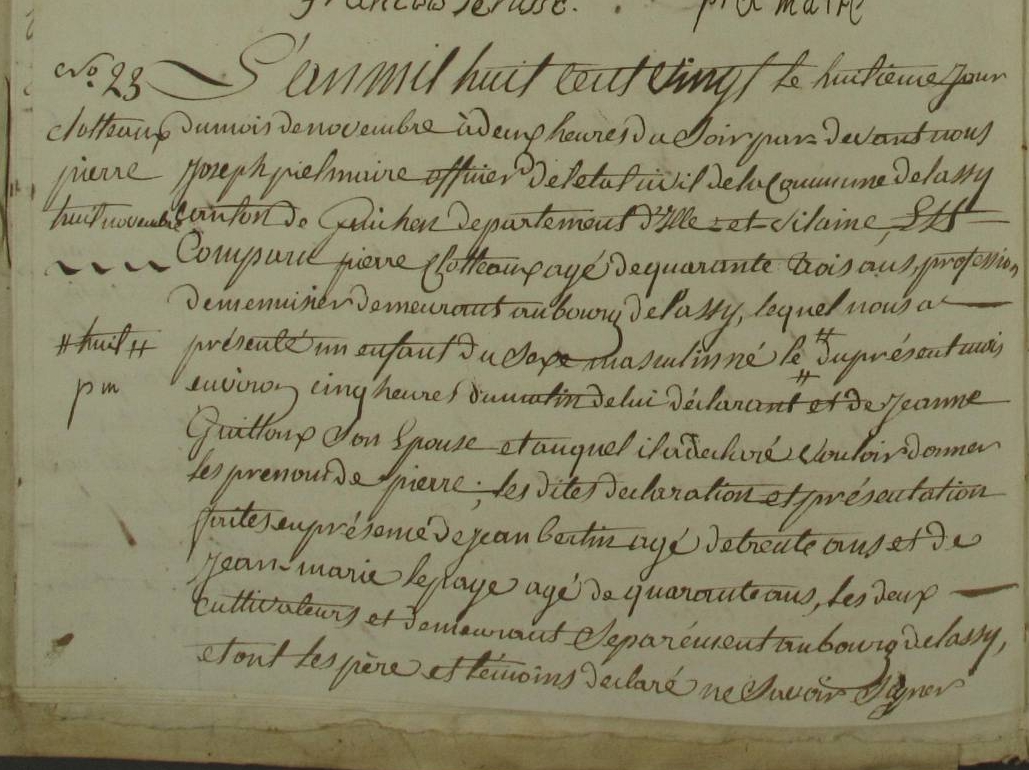 pre maire
No. 23
clotteaux
pierre
huit novembre
# huit #
p m
L'an mil huit cent vingt le huitième jour
du mois de novembre à deux heures du soir par = devant nous
Joseph piel maire officier de l'etat civil de la Commune de lassy
canton de Guichen departement d'Ille = et = Vilaine, Est
Comparu pierre Clotteaux agé de quarante trois ans, profession
de menuisier demeurant au bourg de lassy, lequel nous a
présenté un enfant du Sexe masculin né le # du présent mois
environ cinq heures du matin de lui déclarant et de Jeanne
Guilloux Son Epouse et auquel il a declaré Vouloir donner
les prenom de pierre; les dites declaration et présentation
faites en présence de Jean bertin agé de trente ans et de
Jean-marie lepage agé de quarante ans, les deux
cultivateurs et demeurant Séparément au bourg de lassy,
et ont les père et témoins declaré ne Savoir Signer